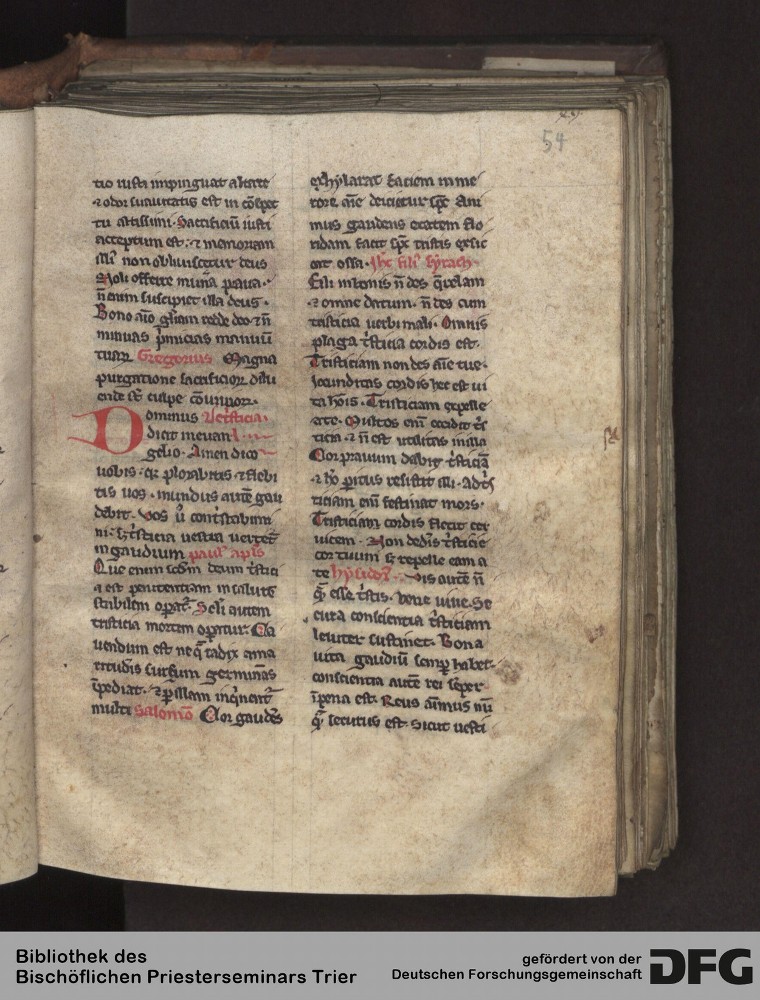 54
tio iusti impinguat altare
⁊ odor suauitatis est in cōspec
tu altissimi. Sacrificiū iusti
acceptum est. ⁊ memoriam
illi' non obliuiscetur deus
Noli offerre mun̄a praua.
n̄ enim suscipiet illa deus.
Bono aīo gl̄iam redde deo ⁊ n̄
minuas p̄micias manuū
tuaꝝ Gregorius Magna
purgatione sacrificioꝝ dilu
ende st̄ culpe
Dominus De t͛sticia.
dicit in euan
gelio. Amen dico
uobis. qꝛ plorabitis ⁊ flebi
tis uos. mundus autē gau
debit. Vos ū cont͛stabimi
ni. sꝫ t͛sticia uestra uertet͛
in gaudium paul' apl̄s
Que enim scd̄m deum t͛stici
a est penitentiam in salutē
stabilem opat͛. Seculi autem
tristicia mortem opatur. Ca
uendum est ne q̄ radix ama
ritudis sursum germinās
īpediat. ⁊ p illam inq̇nent͛
multi Salomō Cor gaudēs
exhylarat faciem in me
rore aīe deicietur sp̄c Ani
mus gaudens etatem flo
ridam facit sp̄c tristis exsic
cat ossa. Ihc̄ fili' syrach.
Fili in bonis n̄ des q̄relam
⁊ omne datum. n̄ des cum
tristicia uerbi mali. Omnis
plaga t͛sticia cordis est.
Tristiciam non des aīe tue.
Jocunditas cordis hec est ui
ta hoīs. Tristiciam expelle
a te. Multos enī occidit t͛s
ticia. ⁊ n̄ est utilitas in illa
Cor prauum dabit t͛sticiā
⁊ hō peritus resistit illi. A
ticiam enī festinat mors.
Tristiciam cordis flectit cer
uicem. Non dederis t͛sticie
cor tuum sꝫ repelle eam a
te hysidor'. Vis autē n̄
q̄ esse t͛stis. bene uiue. Se
cura conscientia t͛sticiam
leuiter sustinet. Bona
uita gaudiū semꝑ habet.
conscientia autē rei semper
ī pena est. Reus aīmus nū
q̄ securus est. Sicut uesti
Bibliothek des
Bischöflichen Priesterseminars Trier
gefördert von der
Deutschen Forschungsgemeinschaft
DFG